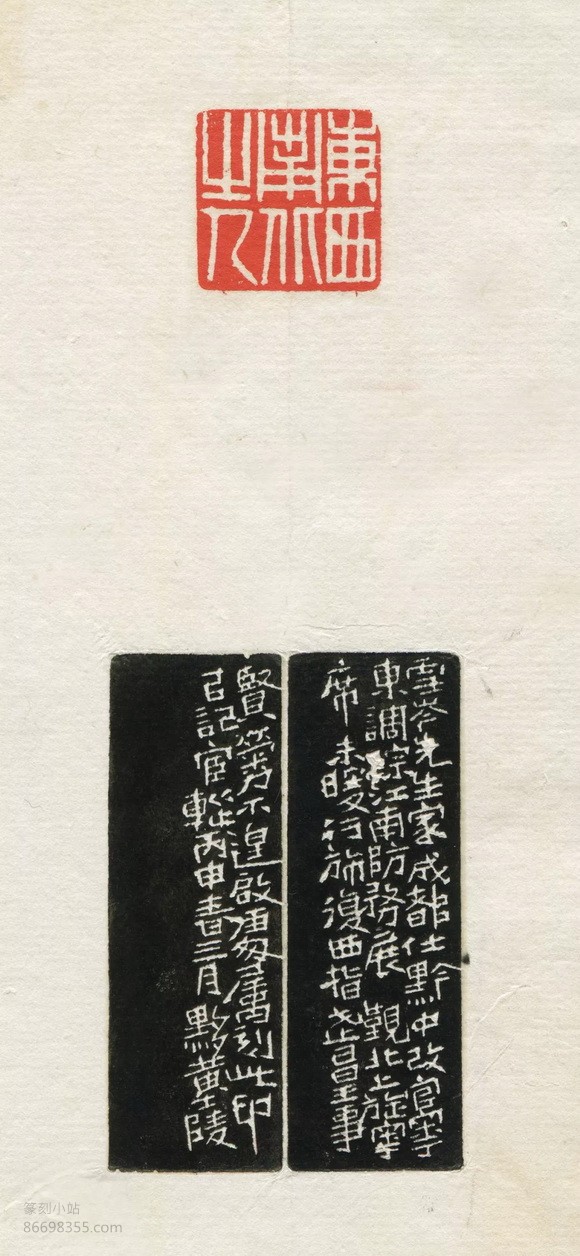 東西
南北
之人
雪岑先生家成都仕黔中改官寧
東調綜江南防務展 覲北上旋寧
席未暖行旆復西指武昌王事
賢勞不遑啟處屬刻此印
㠯記宦轍丙申春三月黟黃士陵
篆刻小站
86698355.com